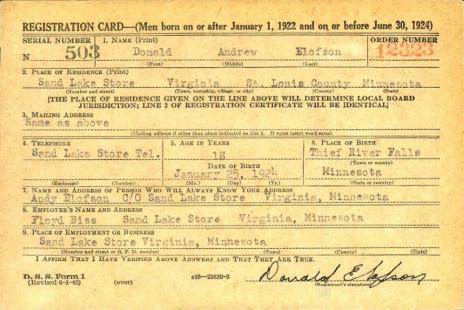 REGISTRATION CARD—(Men born on or after January 1, 1922 and on or before June 30, 1924)
SERIAL NUMBER 1. NAME (Print) ORDER NUMBER
N 503 Donald Andrew Elofson 12323
(First) (Middle) (Last)
2. PLACE OF RESIDENCE (Print)
Sand Lake Store Virginia St. Louis County Minnesota
(Number and street) (Town, township, village, or city) (County) (State)
[THE PLACE OF RESIDENCE GIVEN ON THE LINE ABOVE WILL DETERMINE LOCAL BOARD
JURISDICTION; LINE 2 OF REGISTRATION CERTIFICATE WILL BE IDENTICAL]
3. MAILING ADDRESS
Same as above
(Mailing address if other than place indicated on line 2. If same insert word same)
4. TELEPHONE 5. AGE IN YEARS 6. PLACE OF BIRTH
Sand Lake Store Tel. 18 Thief River Falls
DATE OF BIRTH (Town or county)
January 25, 1924 Minnesota
(Exchange) (Number) (Mo.) (Day) (Yr.) (State or country)
7. NAME AND ADDRESS OF PERSON WHO WILL ALWAYS KNOW YOUR ADDRESS
Andy Elofson C/O Sand Lake Store Virginia, Minnesota
8. EMPLOYER'S NAME AND ADDRESS
Floyd Biss Sand Lake Store Virginia, Minnesota
9. PLACE OF EMPLOYMENT OR BUSINESS
Sand Lake Store Virginia, Minnesota
(Number and street or R. F. D. number) (Town) (County) (State)
I AFFIRM THAT I HAVE VERIFIED ABOVE ANSWERS AND THAT THEY ARE TRUE.
D. S. S. Form 1
(Revised 6-1-42) (over) 16—21630-3 Donald Elofson
(Registrant's signature)